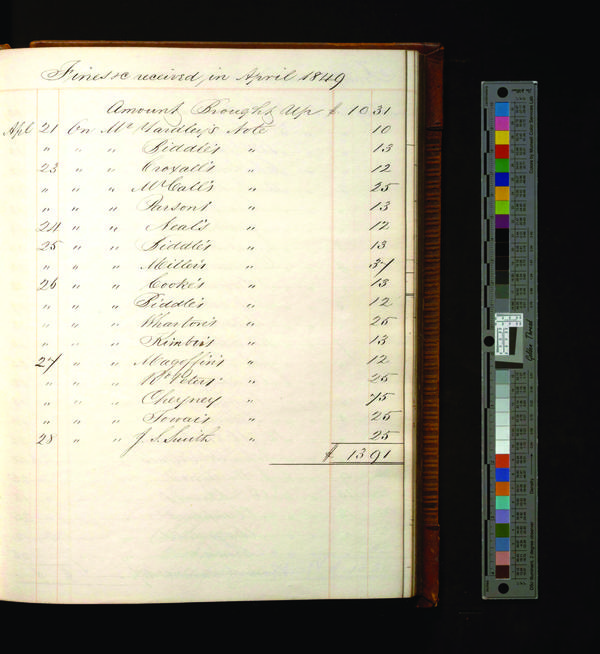 Fines &c received in April 1849
Amount Brought Up $ 10 31
Apl 21 On Mr Yardley's Note 10
" " " Biddle's " 13
23 " " Croxall's " 12
" " " McCall's " 25
" " " Parsons' " 13
24 " " Neal's " 12
25 " " Biddle's " 13
" " " Miller's " 37
26 " " Cooke's " 13
" " " Biddle's " 12
" " " Wharton's " 25
" " " Kimber's " 13
27 " " Magoffin's " 12
" " " Peters' " 25
" " " Cheyney " 75
" " " Towar's " 25
28 " " J. S. Smith " 25
$ 13 91
Golden Thread